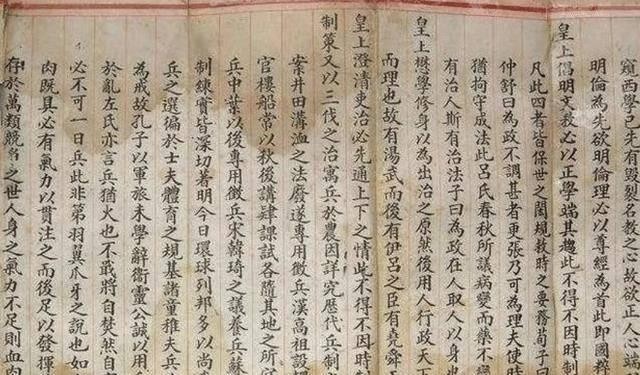 窺西學已先有毀裂名教之心故欲正人心端
明倫為先欲明倫理必以尊經為首此即國粹
皇上倡明文教必以正學端其趨此不得不因時制
凡此四者皆保世之閎規救時之要務荀子曰
仲舒曰為政不調甚者更張乃可為理夫使時
猶拘守成法此呂氏春秋所議病變而藥不變
有治人斯有治法子曰為政在人取人以身也
皇上懋學修身以為出治之原然後用人行政天下
而理也故有湯武而後有伊呂之臣有堯舜
皇上澄清吏治必先通上下之情此不得不因時制
制策又以三代之治寓兵於農因詳究歷代兵制
案井田溝洫之法廢遂專用徵兵漢高祖設
官樓船常以秋後講肄課試各隨其地之所
兵中葉以後專用徵兵宋韓琦之議養兵蘇
制練實皆深切著明今日環球列邦多以尚
兵之選徧於士夫體育之規基諸童稚夫兵
為戒故孔子以軍旅未學辭衛靈公誠以用
於亂左氏亦言兵猶火也不戢將自焚然自
必不可一日兵此非第羽翼爪牙之說也如
肉既具必有氣力以貫注之而後足以發揮
存於萬類競爭之世人身之氣力不足則血肉